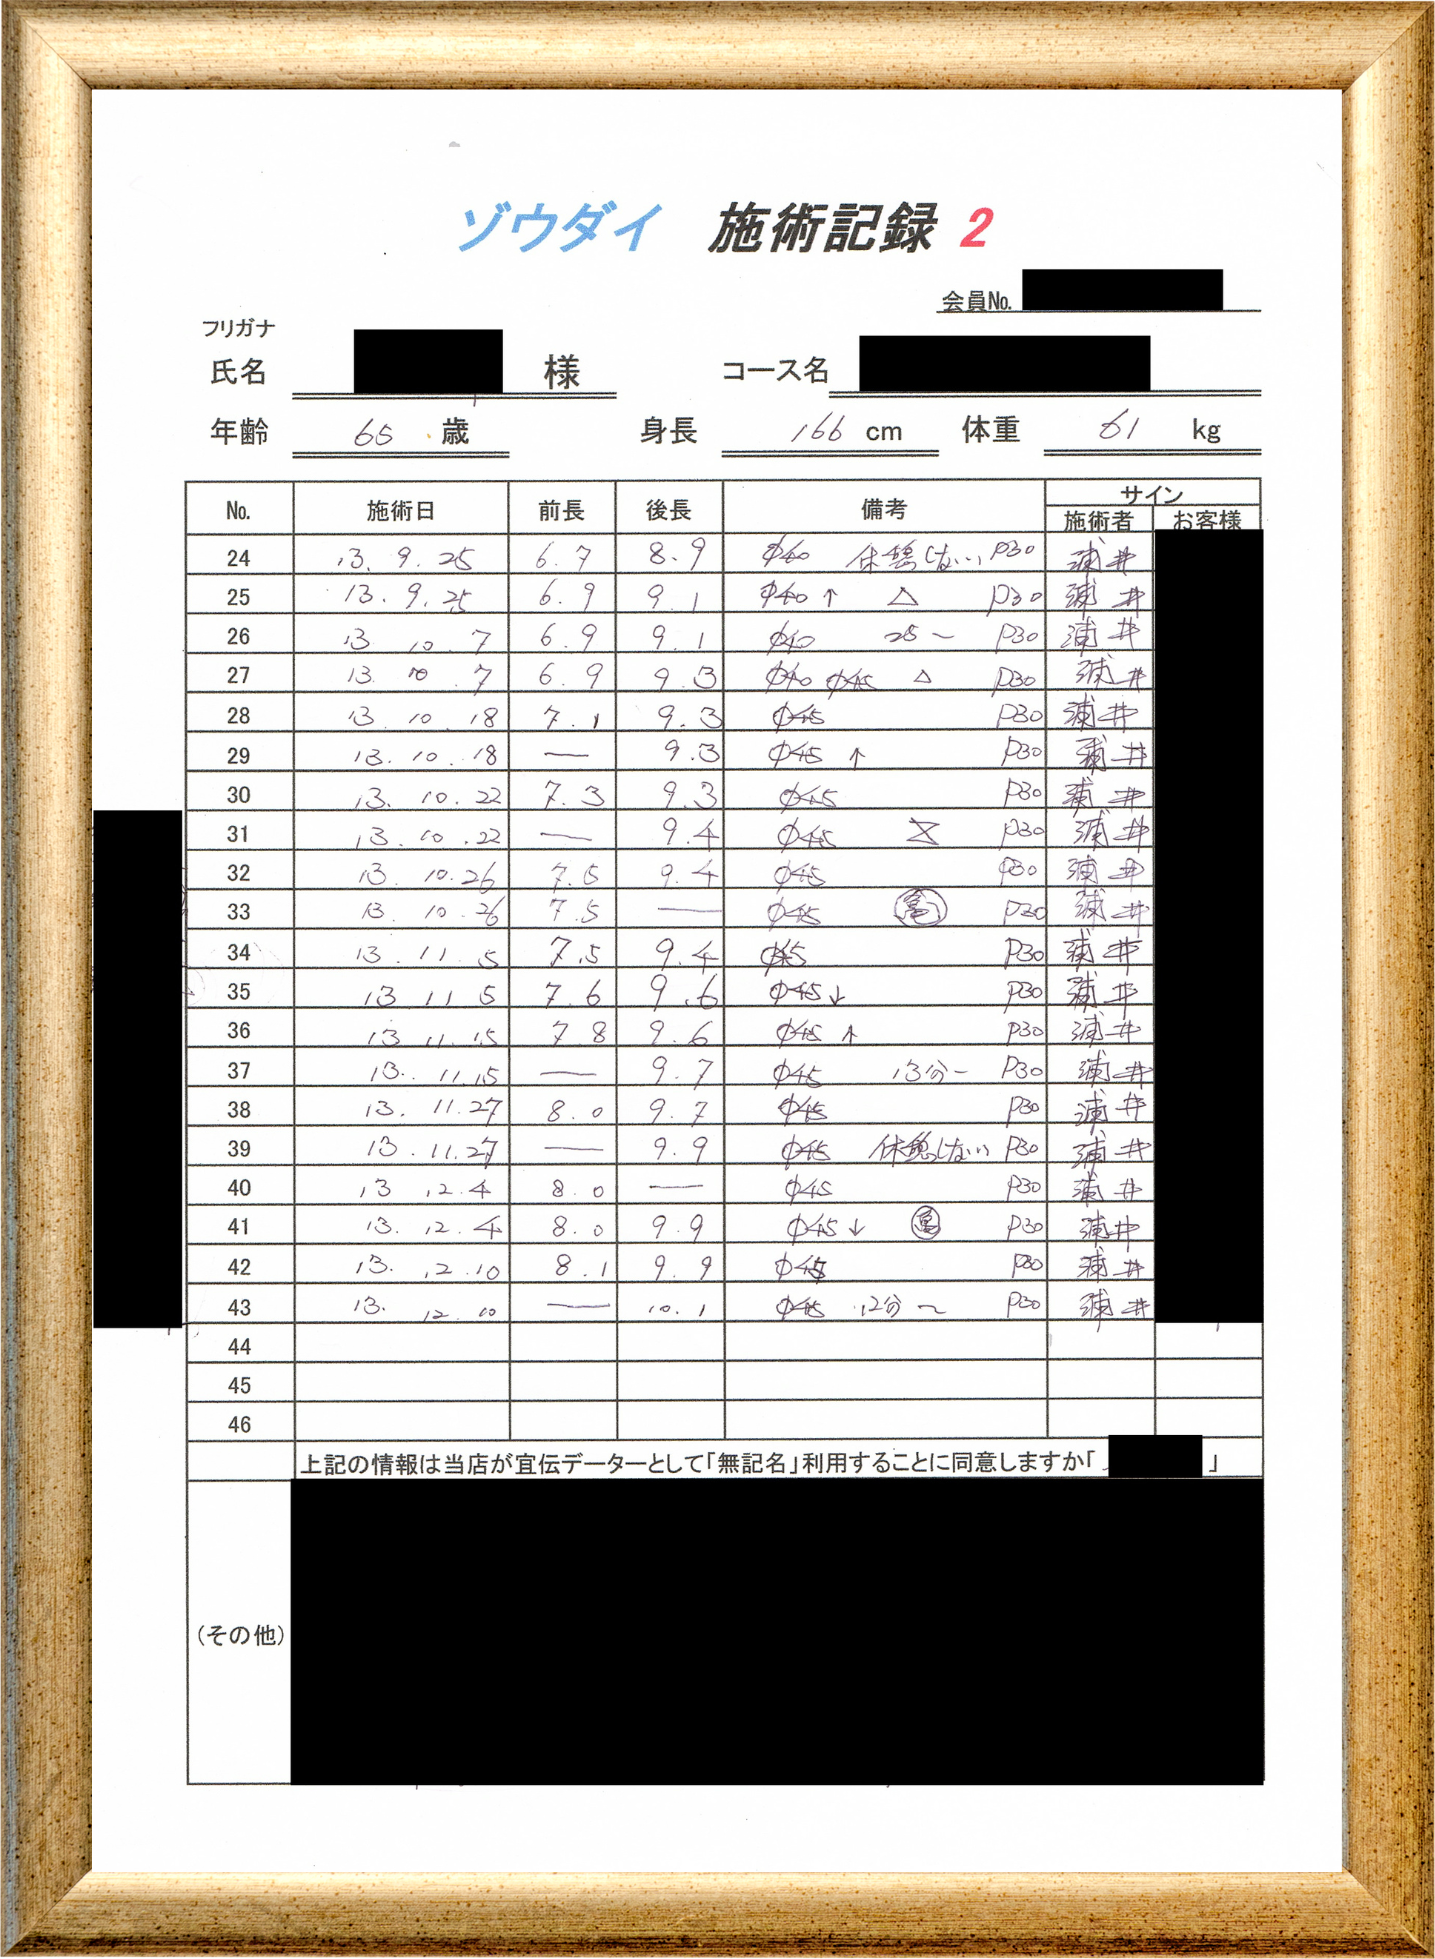 ゾウダイ 施術記録 2
会員No.
フリガナ
氏名 様 コース名
年齢 65 歳 身長 166 cm 体重 61 kg
No. 施術日 前長 後長 備考 サイン
施術者 お客様
24 13. 9. 25 6.7 8.9 φ40 休憩しない P30 浦井
25 13. 9. 25 6.9 9.1 φ40 ↑ △ P30 浦井
26 13 10 7 6.9 9.1 φ40 25〜 P30 浦井
27 13. 10. 7 6.9 9.3 φ40 φ45 △ P30 浦井
28 13 10 18 7.1 9.3 φ45 P30 浦井
29 13. 10. 18 — 9.3 φ45 ↑ P30 浦井
30 13. 10. 22 7.3 9.3 φ45 P30 浦井
31 13. 10. 22 — 9.4 φ45 P30 浦井
32 13. 10. 26 7.5 9.4 φ45 P30 浦井
33 13. 10. 26 7.5 — φ45 P30 浦井
34 13. 11. 5 7.5 9.4 φ45 P30 浦井
35 13 11 5 7.6 9.6 φ45 ↓ P30 浦井
36 13 11. 15 7.8 9.6 φ45 ↑ P30 浦井
37 13. 11. 15 — 9.7 φ45 13分〜 P30 浦井
38 13. 11. 27 8.0 9.7 φ45 P30 浦井
39 13. 11. 27 — 9.9 φ45 休憩しない P30 浦井
40 13 12. 4 8.0 — φ45 P30 浦井
41 13. 12. 4 8.0 9.9 φ45 ↓ P30 浦井
42 13. 12. 10 8.1 9.9 φ45 P30 浦井
43 13. 12. 10 — 10.1 φ45 12分〜 P30 浦井
44
45
46
上記の情報は当店が宣伝データーとして「無記名」利用することに同意しますか「 」
(その他)